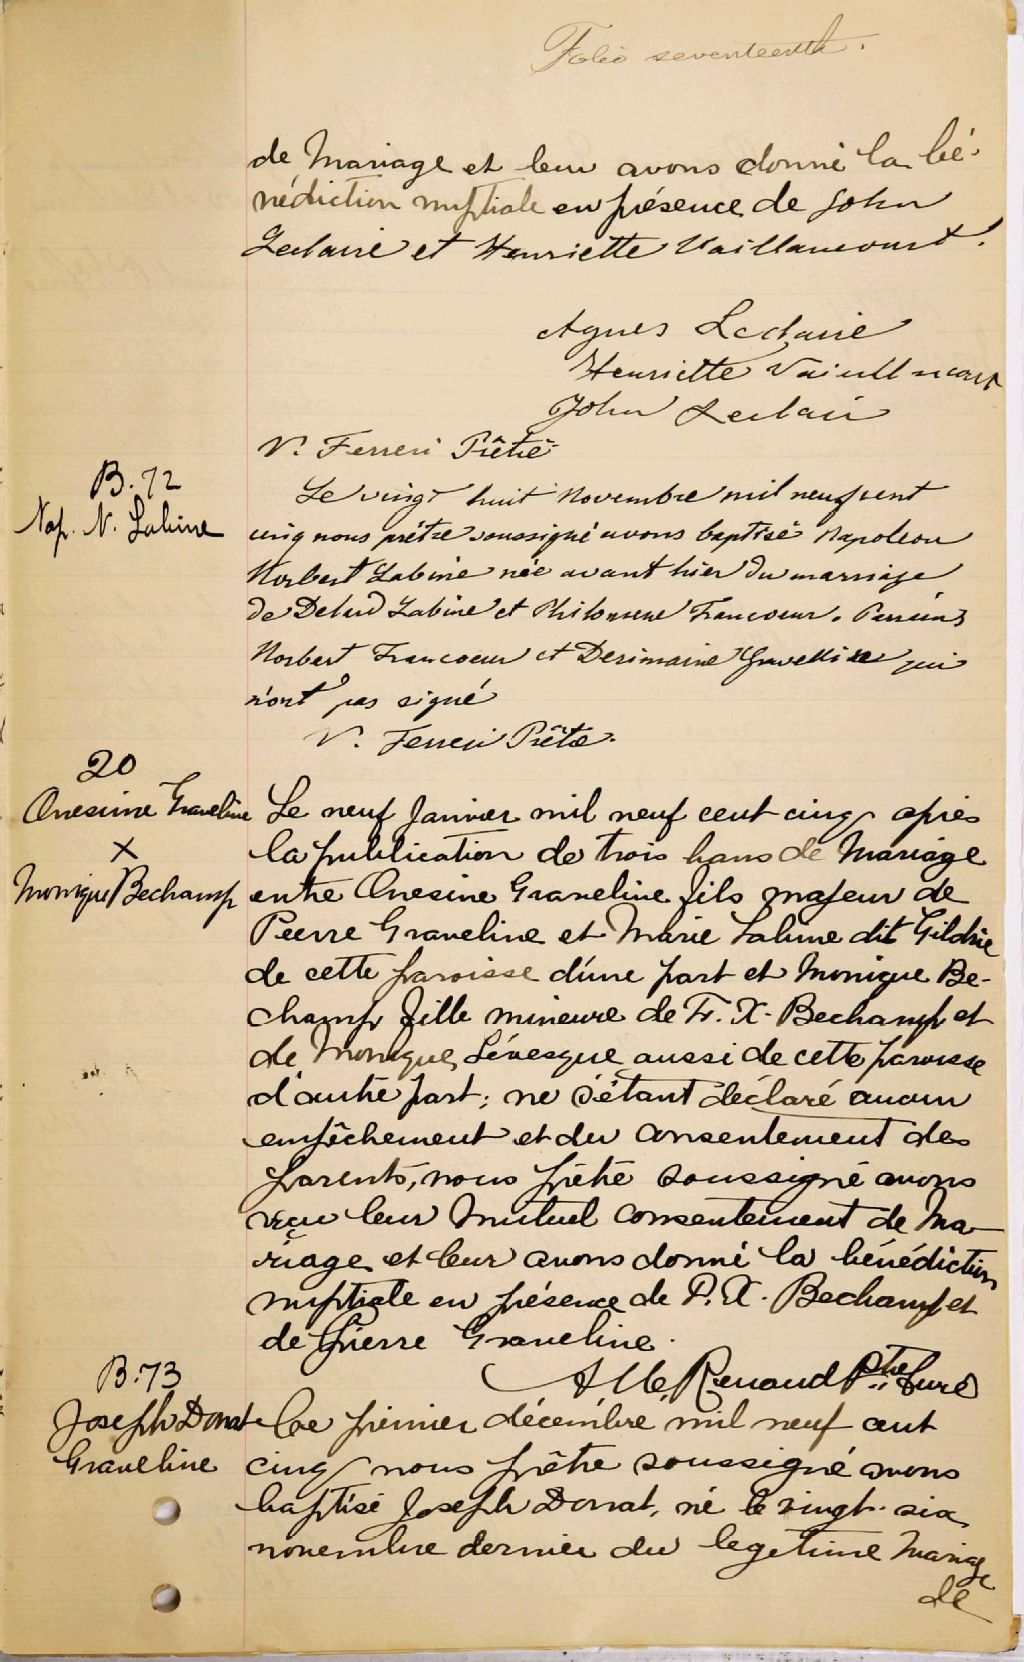 Folio seventeenth.
de Mariage et leur avons donné la bé-
nédiction nuptiale en présence de John
Leclaire et Henriette Vaillancourt.
Agnes Leclaire
Henriette Vaillancourt
John Leclair
V. Ferreri Prêtre
B. 72
Nap. N. Labine
Le vingt huit Novembre mil neuf cent
cinq nous prêtre soussigné avons baptisé Napoleon
Norbert Labine née avant hier du marriage
de Delud Labine et Philomene Francoeur. Parrains
Norbert Francoeur et Desimaine qui
n'ont pas signé
V. Ferreri Prêtre.
20
Onesime Graveline
X
Monique Bechamp
Le neuf Janvier mil neuf cent cinq après
la publication de trois bans de Mariage
entre Onesine Graveline fils majeur de
Pierre Graveline et Marie Labine dit
de cette paroisse d'une part et Monique Be-
champ fille mineure de F. X. Bechamp et
de Monique Lévesque aussi de cette paroisse
d'autre part; ne s'étant déclaré aucun
empêchement et du consentement des
parents, nous prêtre soussigné avons
reçu leur mutuel consentement de Ma-
riage et leur avons donné la bénédiction
nuptiale en présence de F. X. Bechamp et
de Pierre Graveline.
Renaud Ptre Curé
B. 73
Joseph Donat
Graveline
Le premier décembre mil neuf cent
cinq nous prêtre soussigné avons
baptisé Joseph Donat, né le vingt-six
novembre dernier du legetime Mariage
de